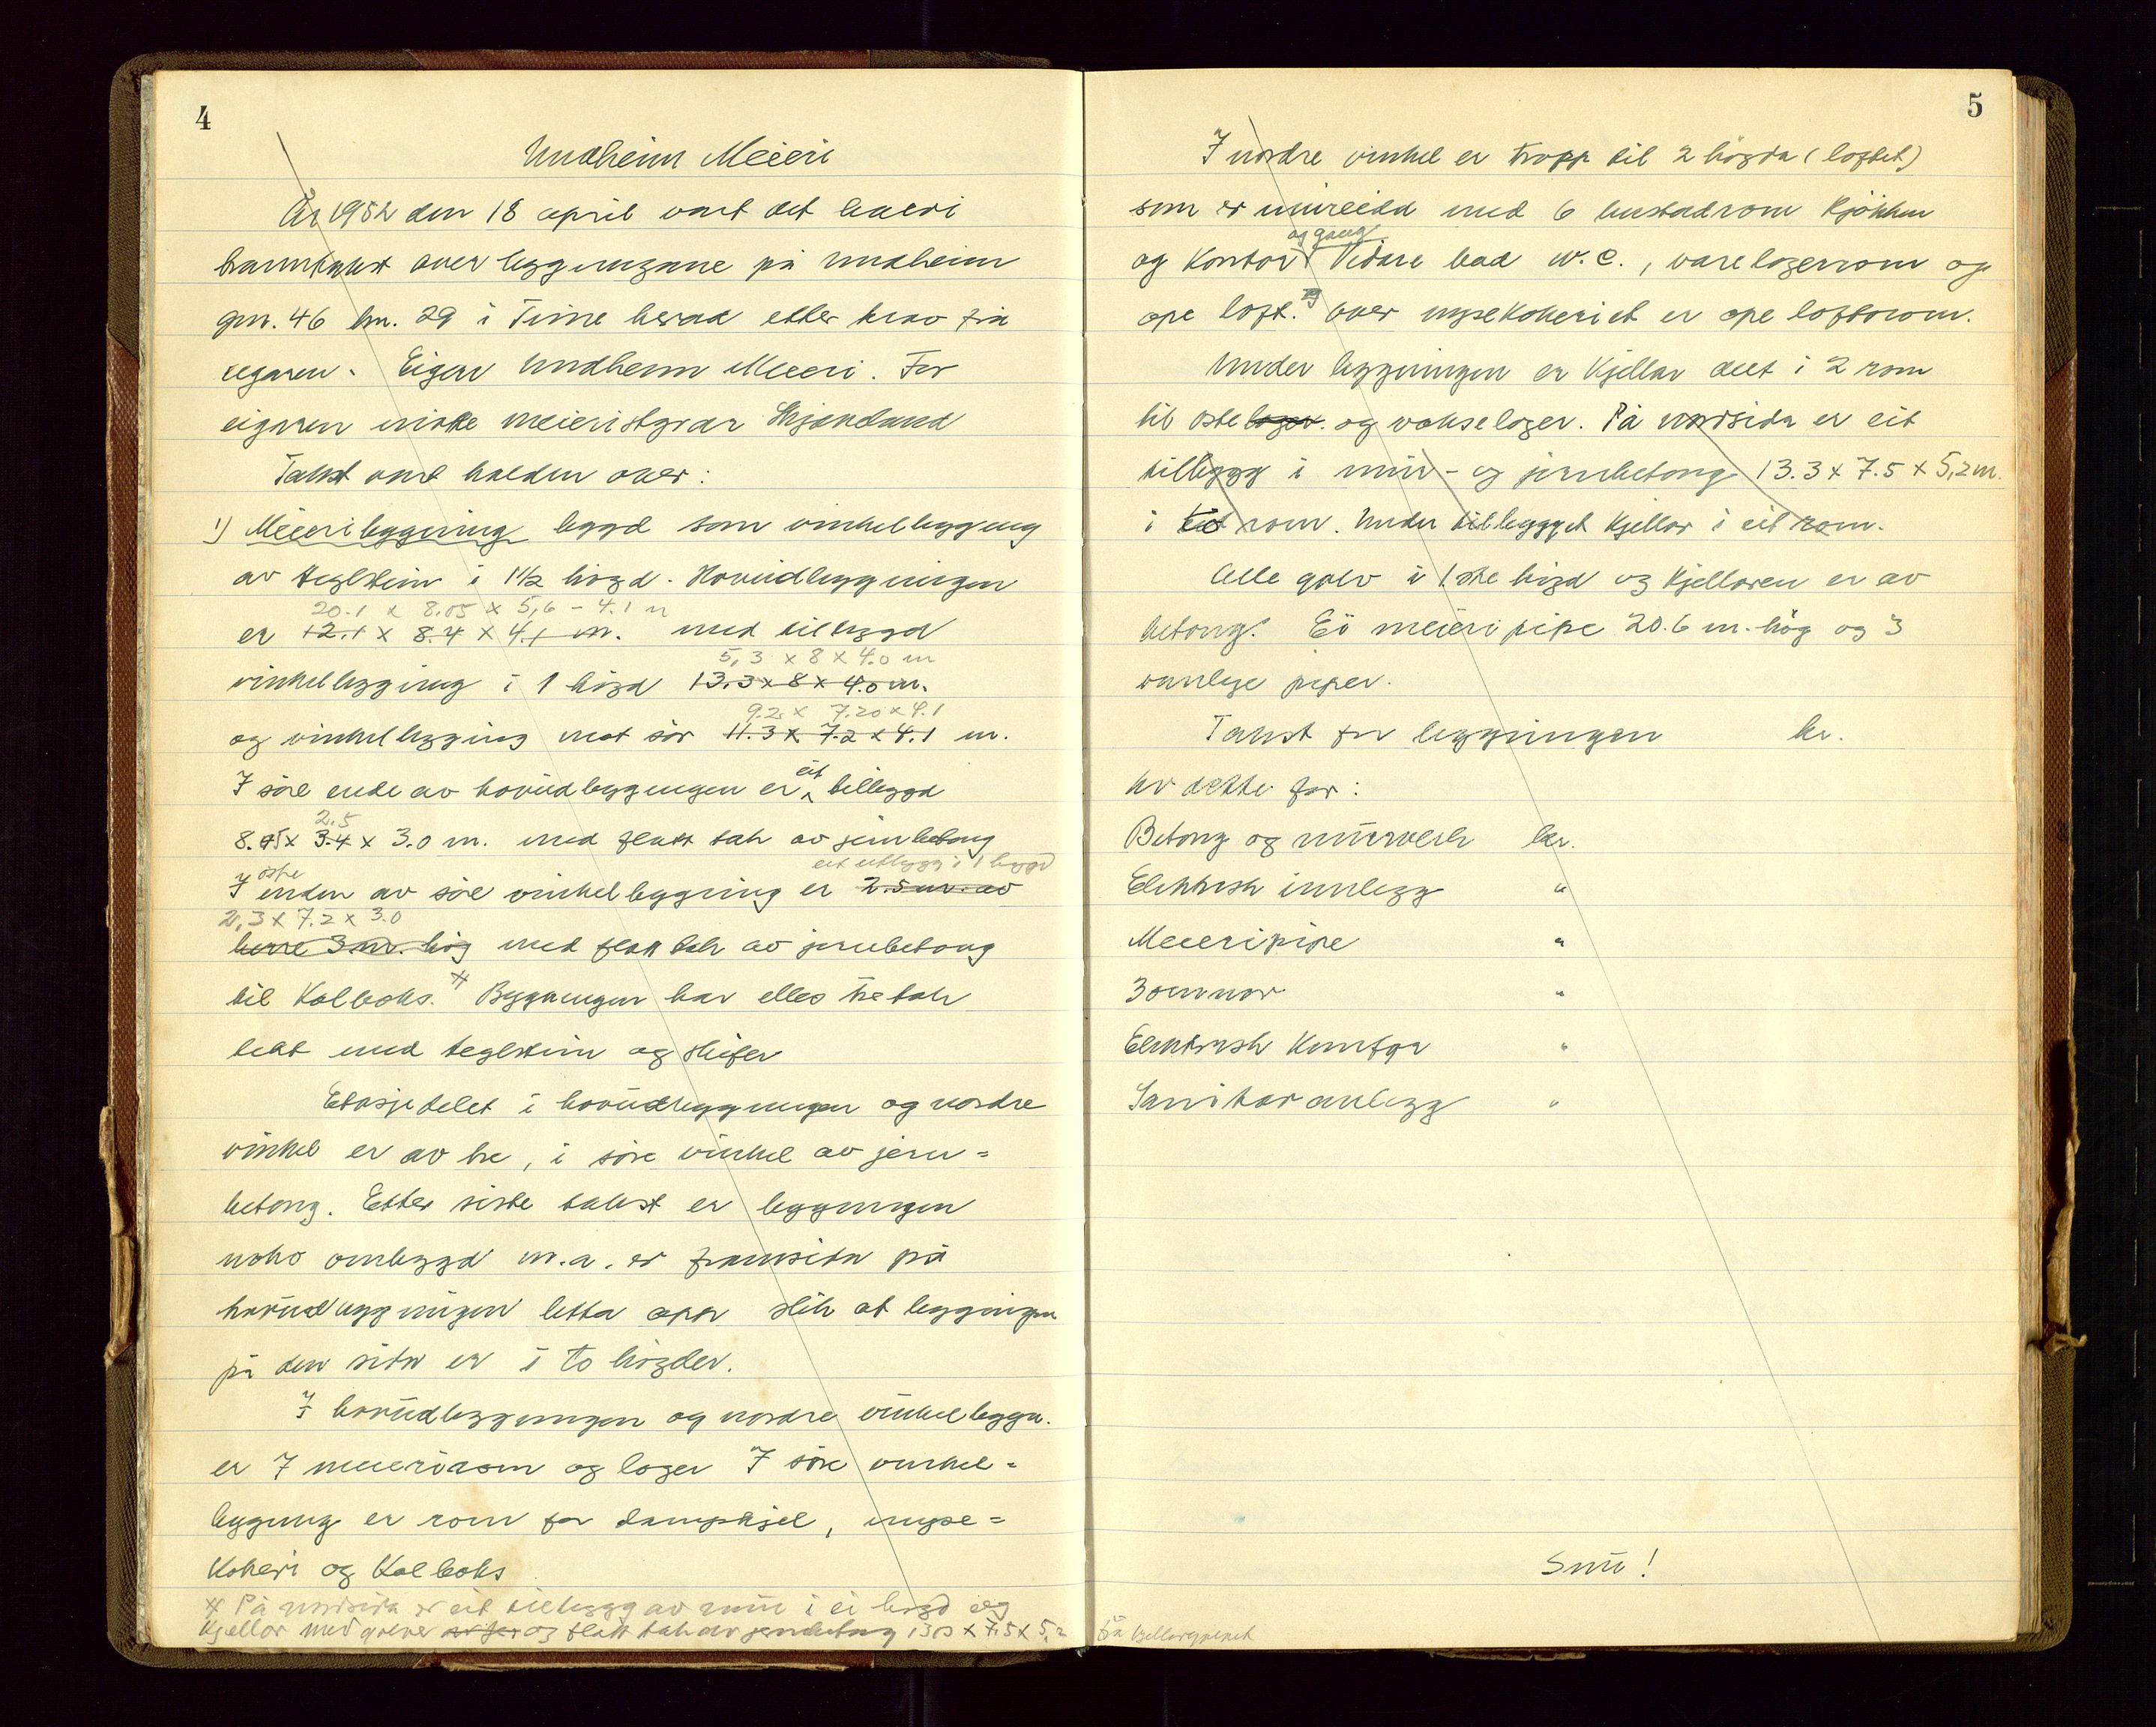 4
Undheim Meieri
År 1952 den 18 april vart det halde
branntakst over bygningane på Undheim
gnr. 46 bnr. 29 i Time herad etter krav frå
eigaren. Eigar Undheim Meieri. For
eigaren møtte meieristyrar Skjæveland
Takst vart halden over:
1) Meieribygning bygd som vinkelbygning
av teglstein i 1 1/2 høgd. Hovudbygningen
20.1 x 8.05 x 5,6 - 4.1 m
er 12.1 x 8.4 x 4.1 m. med tilbygd
5,3 x 8 x 4.0 m
vinkelbygning i 1 høgd 13.3 x 8 x 4.0 m.
9.2 x 7.20 x 4.1
og vinkelbygning mot sør 11.3 x 7.2 x 4.1 m.
I søre ende av hovudbygningen er eit tilbygd
2.5
8.05 x 3.4 x 3.0 m. med flatt tak av jernbetong
eit utbygg i 1 høgd
I østre enden av søre vinkelbygning er 2.5 m. av
2,3 x 7.2 x 3.0
berre 3 m. høg med flatt tak av jernbetong
til Kolboks. x Bygningen har elles tretak
tekt med teglstein og skifer
Etasjedelet i hovudbygningen og nordre
vinkel er av tre, i søre vinkel av jern=
betong. Etter siste takst er bygningen
noko ombygd m.a. er framsida på
hovudbygningen letta opp slik at bygningen
på den sida er i to høgder.
I hovudbygningen og nordre vinkelbygn.
er 7 meierirom og lager I søre vinkel=
bygning er rom for dampkjel, myse=
kokeri og Kolboks
x På nordsida er eit tilbygg av mur i ei høgd og
kjellar med golver av jer og flatt tak av jernbetong 13.3 x 7.5 x 5.2
frå kjellargolvet
5
I nordre vinkel er tropp til 2 høgda (loftet)
som er innreidd med 6 bustadrom kjøkken
og gang
og kontor. Vidare bad w.c., varelagerrom og
ope loft. Over mysekokeriet er ope loftsrom.
Under bygningen er kjellar delt i 2 rom
til ostelager og vokselager. På nordsida er eit
tilbygg i mur- og jernbetong 13.3 x 7.5 x 5,2 m.
i eit rom. Under tilbygget kjellar i eit rom.
Alle golv i 1ste høgd og kjellaren er av
betong. Ei meieripipe 20.6 m. høg og 3
vanlege piper.
Takst for bygningen kr.
Av dette for:
Betong og murverk kr.
Elektrisk innlegg "
Meieripipe "
3 omnar "
Elektrisk Komfyr "
Sanitæranlegg "
Snu!